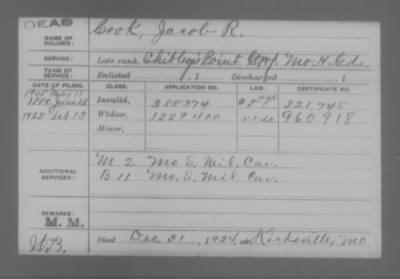 DEAD
NAME OF SOLDIER: Cook, Jacob R.
SERVICE: Late rank, Chitley's Point Comp. Mo. H. Gds.
TERM OF SERVICE: Enlisted , 1 Discharged , 1
DATE OF FILING. CLASS. APPLICATION NO. LAW. CERTIFICATE NO.
Invalid, 388374 321,745
1880 June 18
1925 Feb 13 Widow, 1229400 960918
Minor,
ADDITIONAL SERVICES: M 2 Mo S. Mil. Cav.
B 11 Mo. S. Mil. Cav.
REMARKS:
M. M.
Died Dec 31, 1924, at Kirksville, Mo